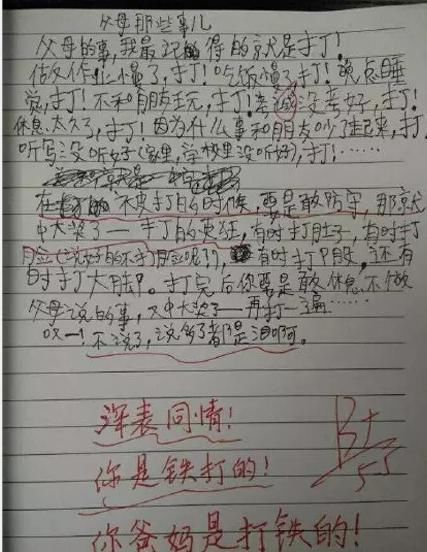 父母那些事儿
父母的事,我最记得的就是打!
作业慢了,打!吃饭慢了,打!晚点睡
觉,打!不和朋友玩,打!考试没考好,打!
休息太久了,打!因为什么事和朋友吵了起来,打
听写没听好(家里,学校里没听好),打!……
在被打的时候,要是敢防守,那就
中大奖了——打的更狂,有时打肚子,有时打
脸(说好的不打脸呢?),有时打屁股,还有
时打大腿。打完后你要是敢休息不做
父母说的事,又中大奖了——再打一遍……
哎!不说了,说多了都是泪啊。
深表同情!
你是铁打的!
B+
你爸妈是打铁的!